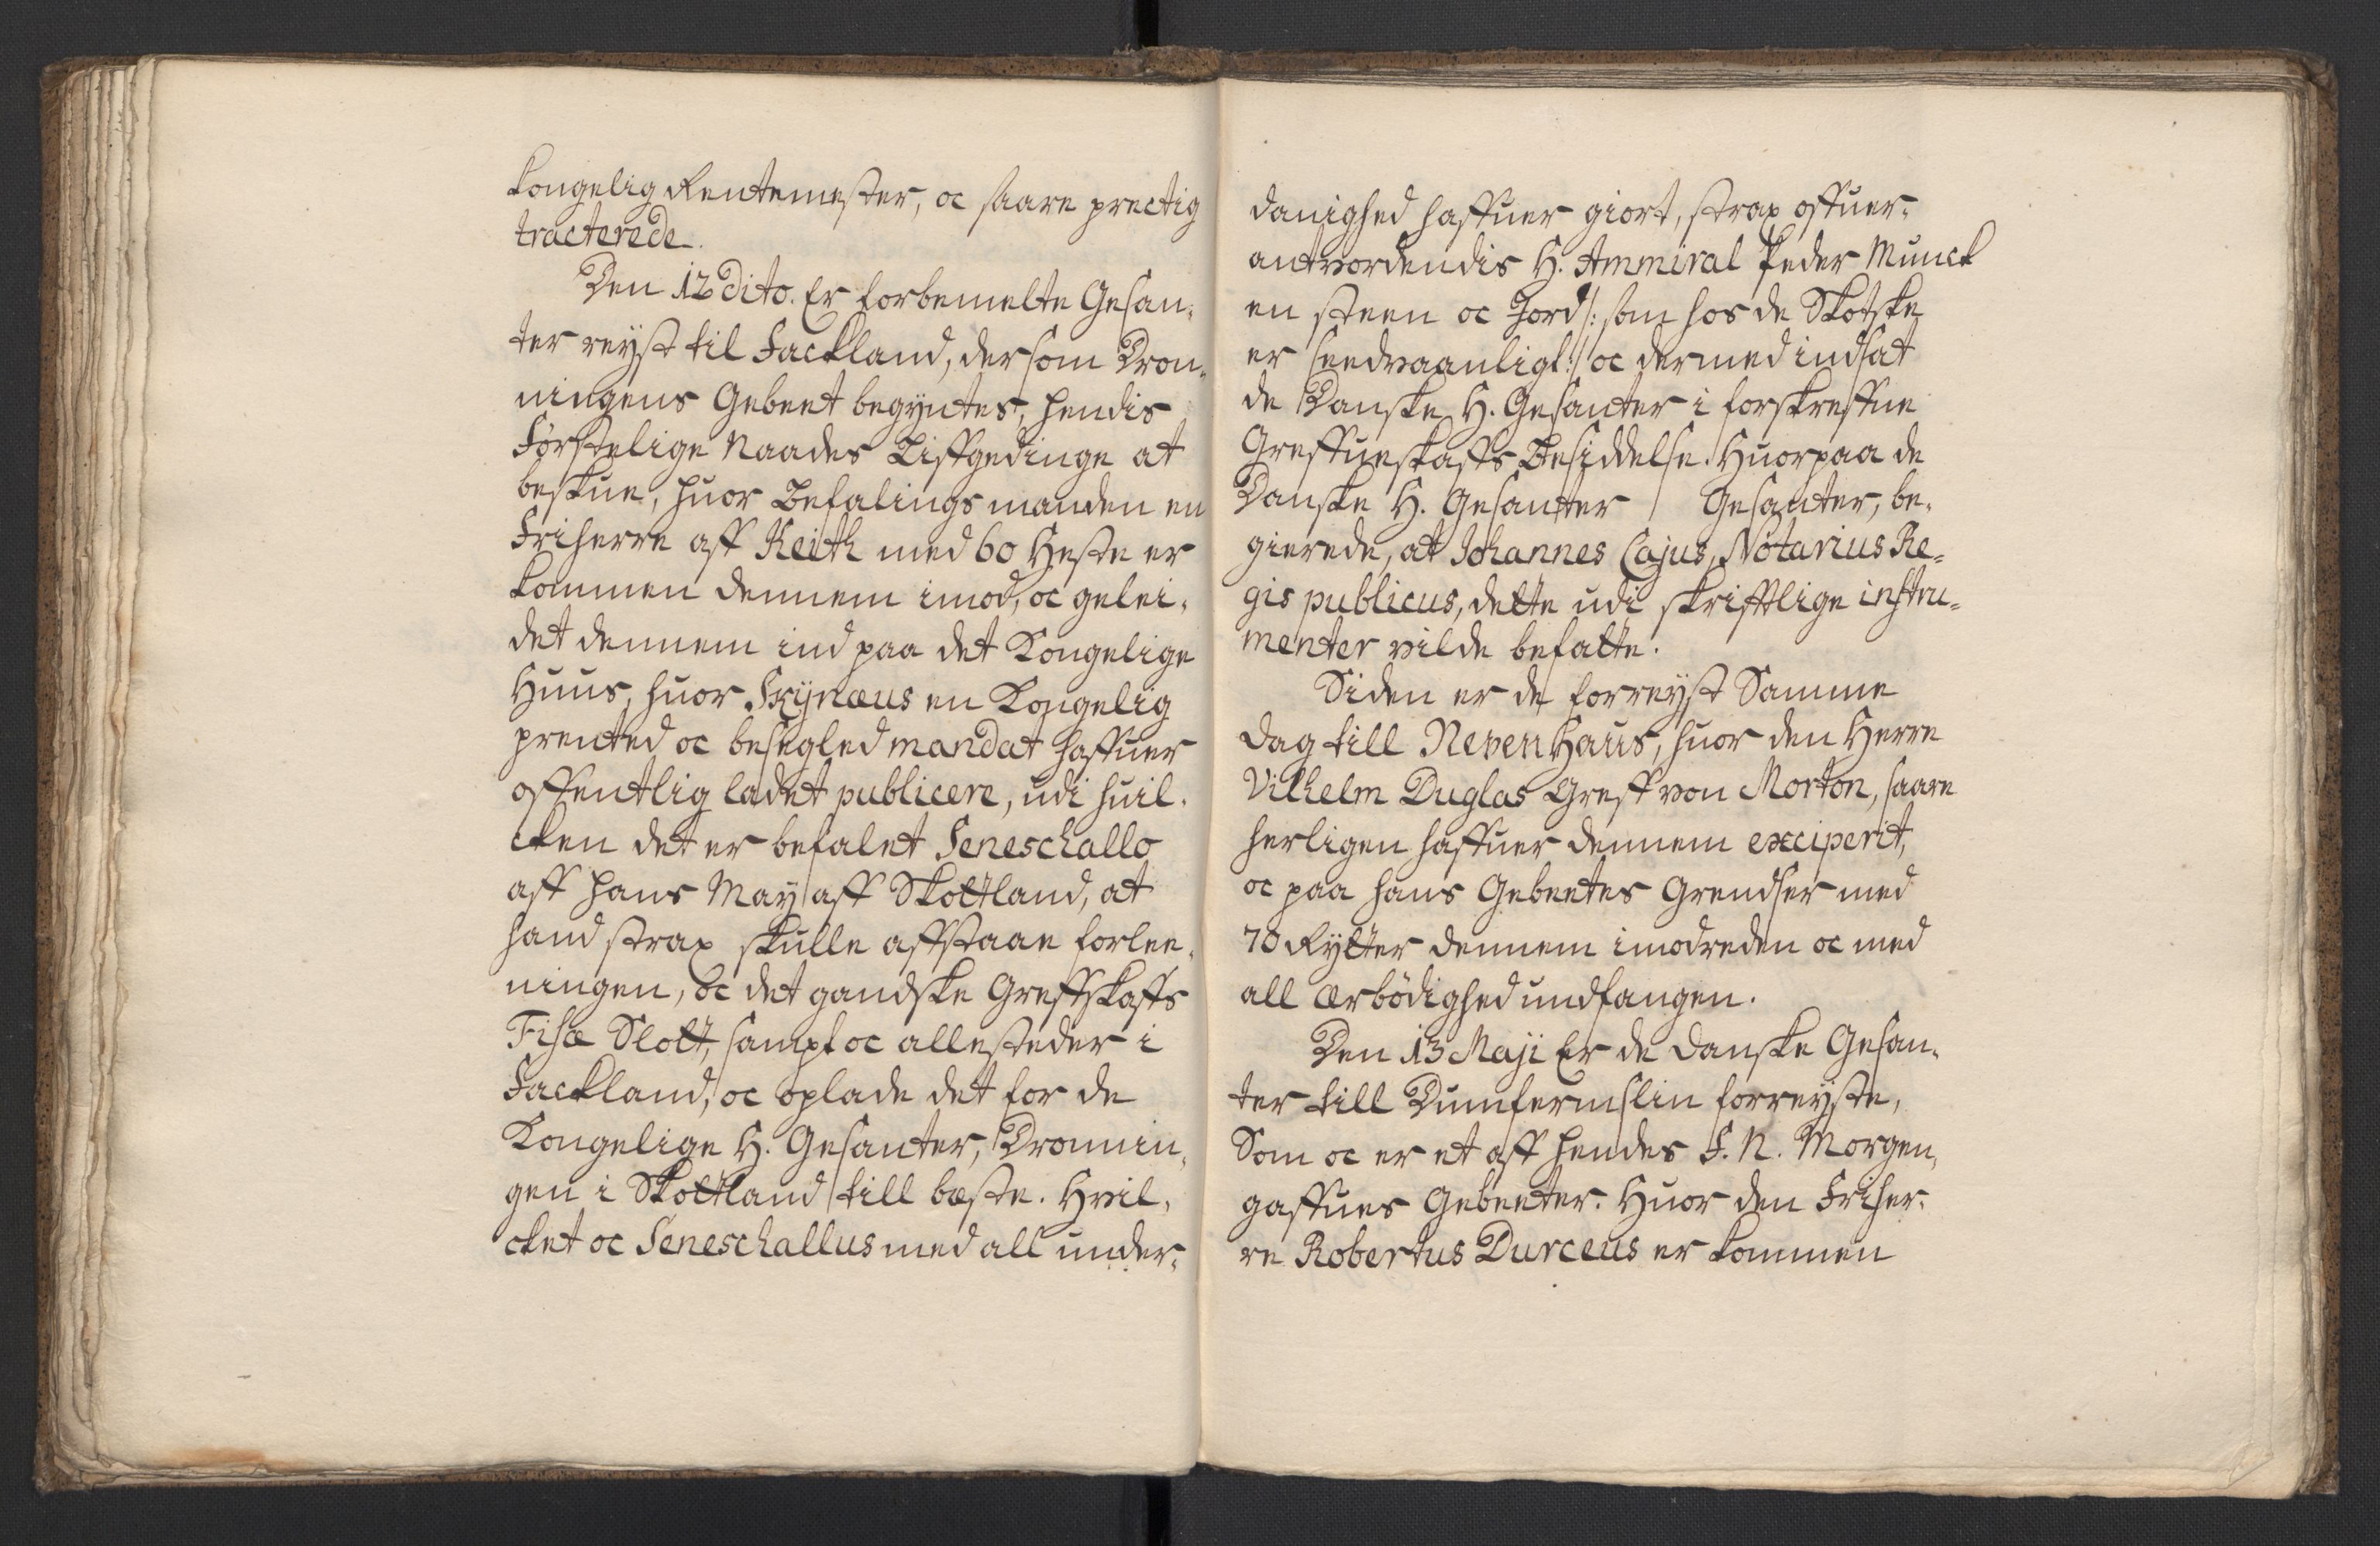 kongelig Rentemester, oc saare prectig
tracterede.
Den 12 Dito. Er forbemelte Gesan-
ter reyst til Fackland, der som Dron-
ningens Gebeet begyntes, hendis
Förstelige Naades Liffgedinge at
beskue, huor Befalingsmanden en
Friherre aff Keith med 60 Heste er
kommen dennem imod, oc gelei-
det dennem ind paa det Kongelige
Huus, huor Skynæus en Kongelig
prented oc besegled mandat haffuer
offentlig ladet publicere, udi huil-
cken det er befalet Seneschallo
aff Hans May: aff Skottland, at
hand strax skulle affstaae forlee-
ningen, oc det gandske Greffskaffs
Fisæ Slott, sampt oc allesteder i
Fackland, oc oplade det for de
Kongelige H. Gesanter, Dronnin-
gen i Skottland till bæste. Hvil-
cket oc Seneschallus med all under-
danighed haffuer giort, strax offuer-
antvordendis H. Ammiral Peder Munck
en steen oc Jord /: som hos de Skotske
er seedvaanligt :/ oc dermed indsat
de Danske H. Gesanter i forskreffne
Greffueskaffs Besiddelse. Huorpaa de
Danske H. Gesantter / Gesanter, be-
gierede, at Johannes Cajus, Notarius Re-
gis publicus, dette udi skrifftlige instru-
menter vilde befatte.
Siden er de forreyst Samme
dag till Neven Haus, huor den Herre
Vilhelm Duglas Greff von Morton, saare
herligen haffuer dennem exciperit,
oc paa hans Gebeetes Grendser med
70 Rytter dennem imodreden oc med
all Ærbödighed undfangen.
Den 13 Maji Er de Danske Gesan-
ter till Dumfermslin forreyste,
Som oc er et aff hendes F. N. Morgen-
gaffues Gebeeter. Huor den Friher-
re Robertus Durceus er kommen